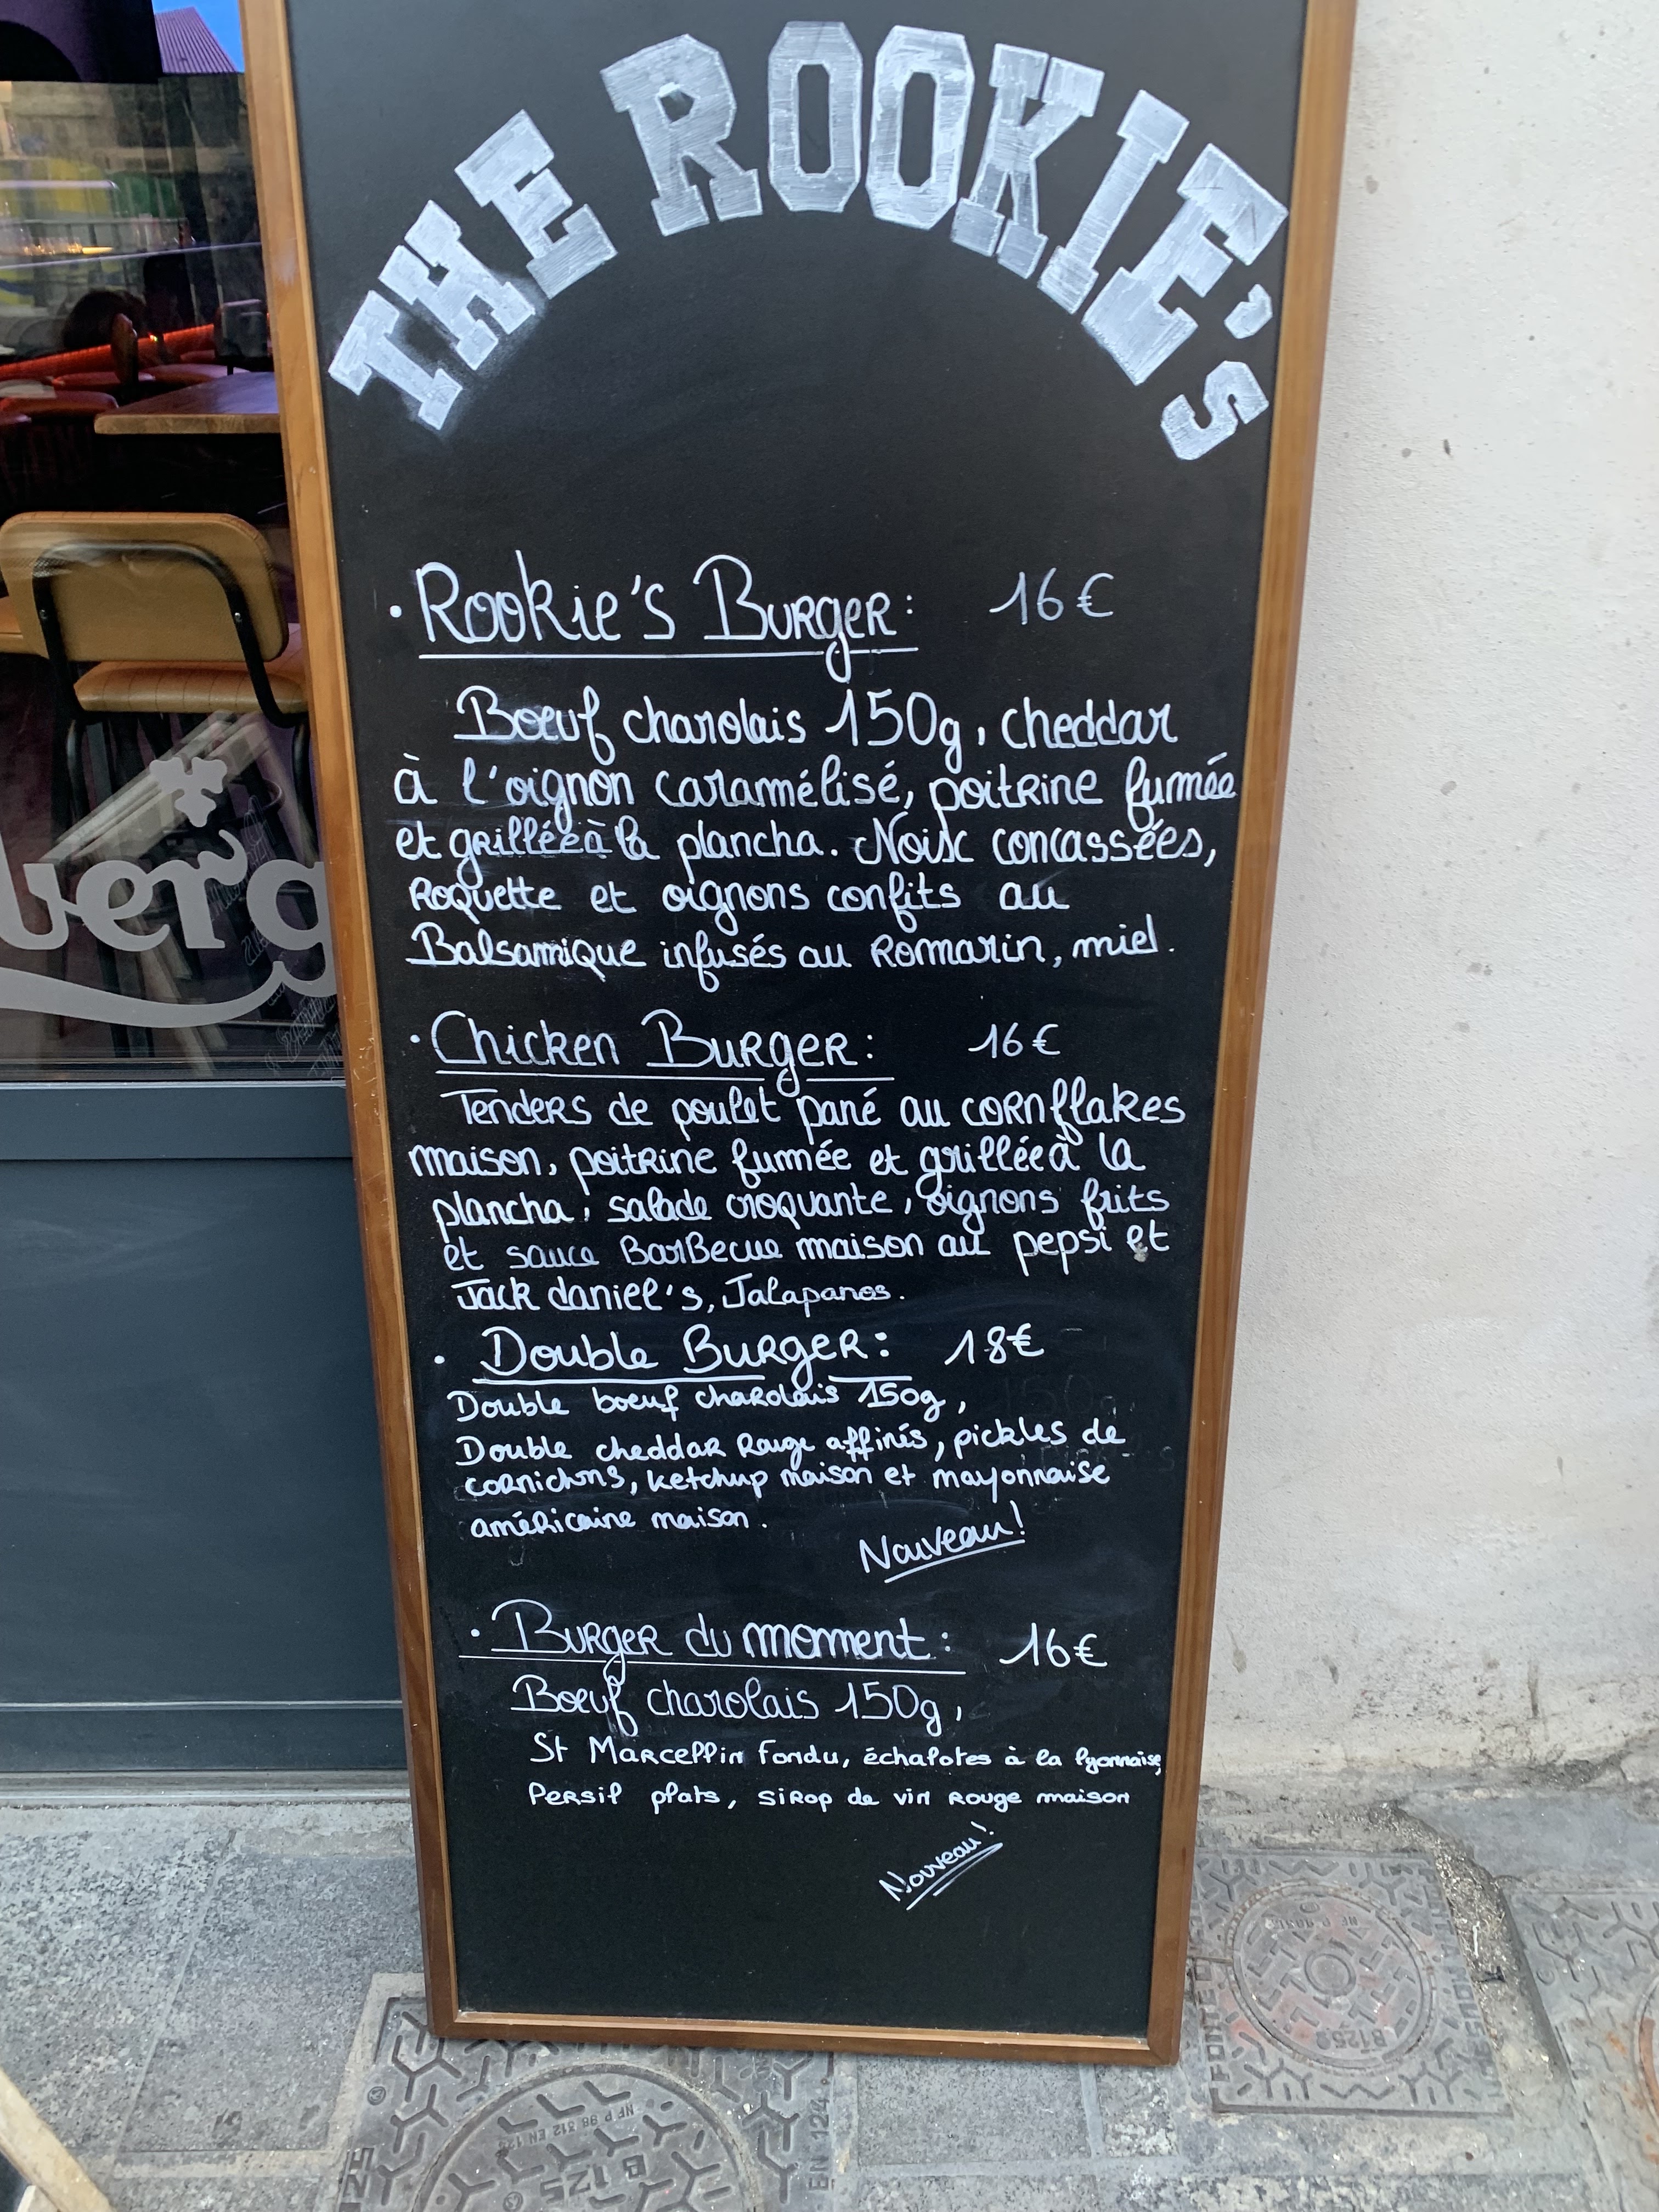 THE ROOKIE's
• Rookie's Burger: 16€
Bœuf charolais 150g, cheddar
à l'oignon caramélisé, poitrine fumée
et grillée à la plancha. Noix concassées,
Roquette et oignons confits au
Balsamique infusés au Romarin, miel.
• Chicken Burger: 16€
Tenders de poulet pané au cornflakes
maison, poitrine fumée et grillée à la
plancha, salade croquante, oignons frits
et sauce BarBecue maison au pepsi et
Jack daniel's, Jalapanos.
• Double Burger: 18€
Double boeuf charolais 150g,
Double cheddar Rouge affinés, pickles de
cornichons, ketchup maison et mayonnaise
américaine maison.
Nouveau!
• Burger du moment: 16€
Bœuf charolais 150g,
St Marcellin fondu, échalotes à la lyonnaise,
Persil plats, sirop de vin rouge maison
Nouveau!
verg
NF P 98 312 EN 124
B 125
EN 124
B125